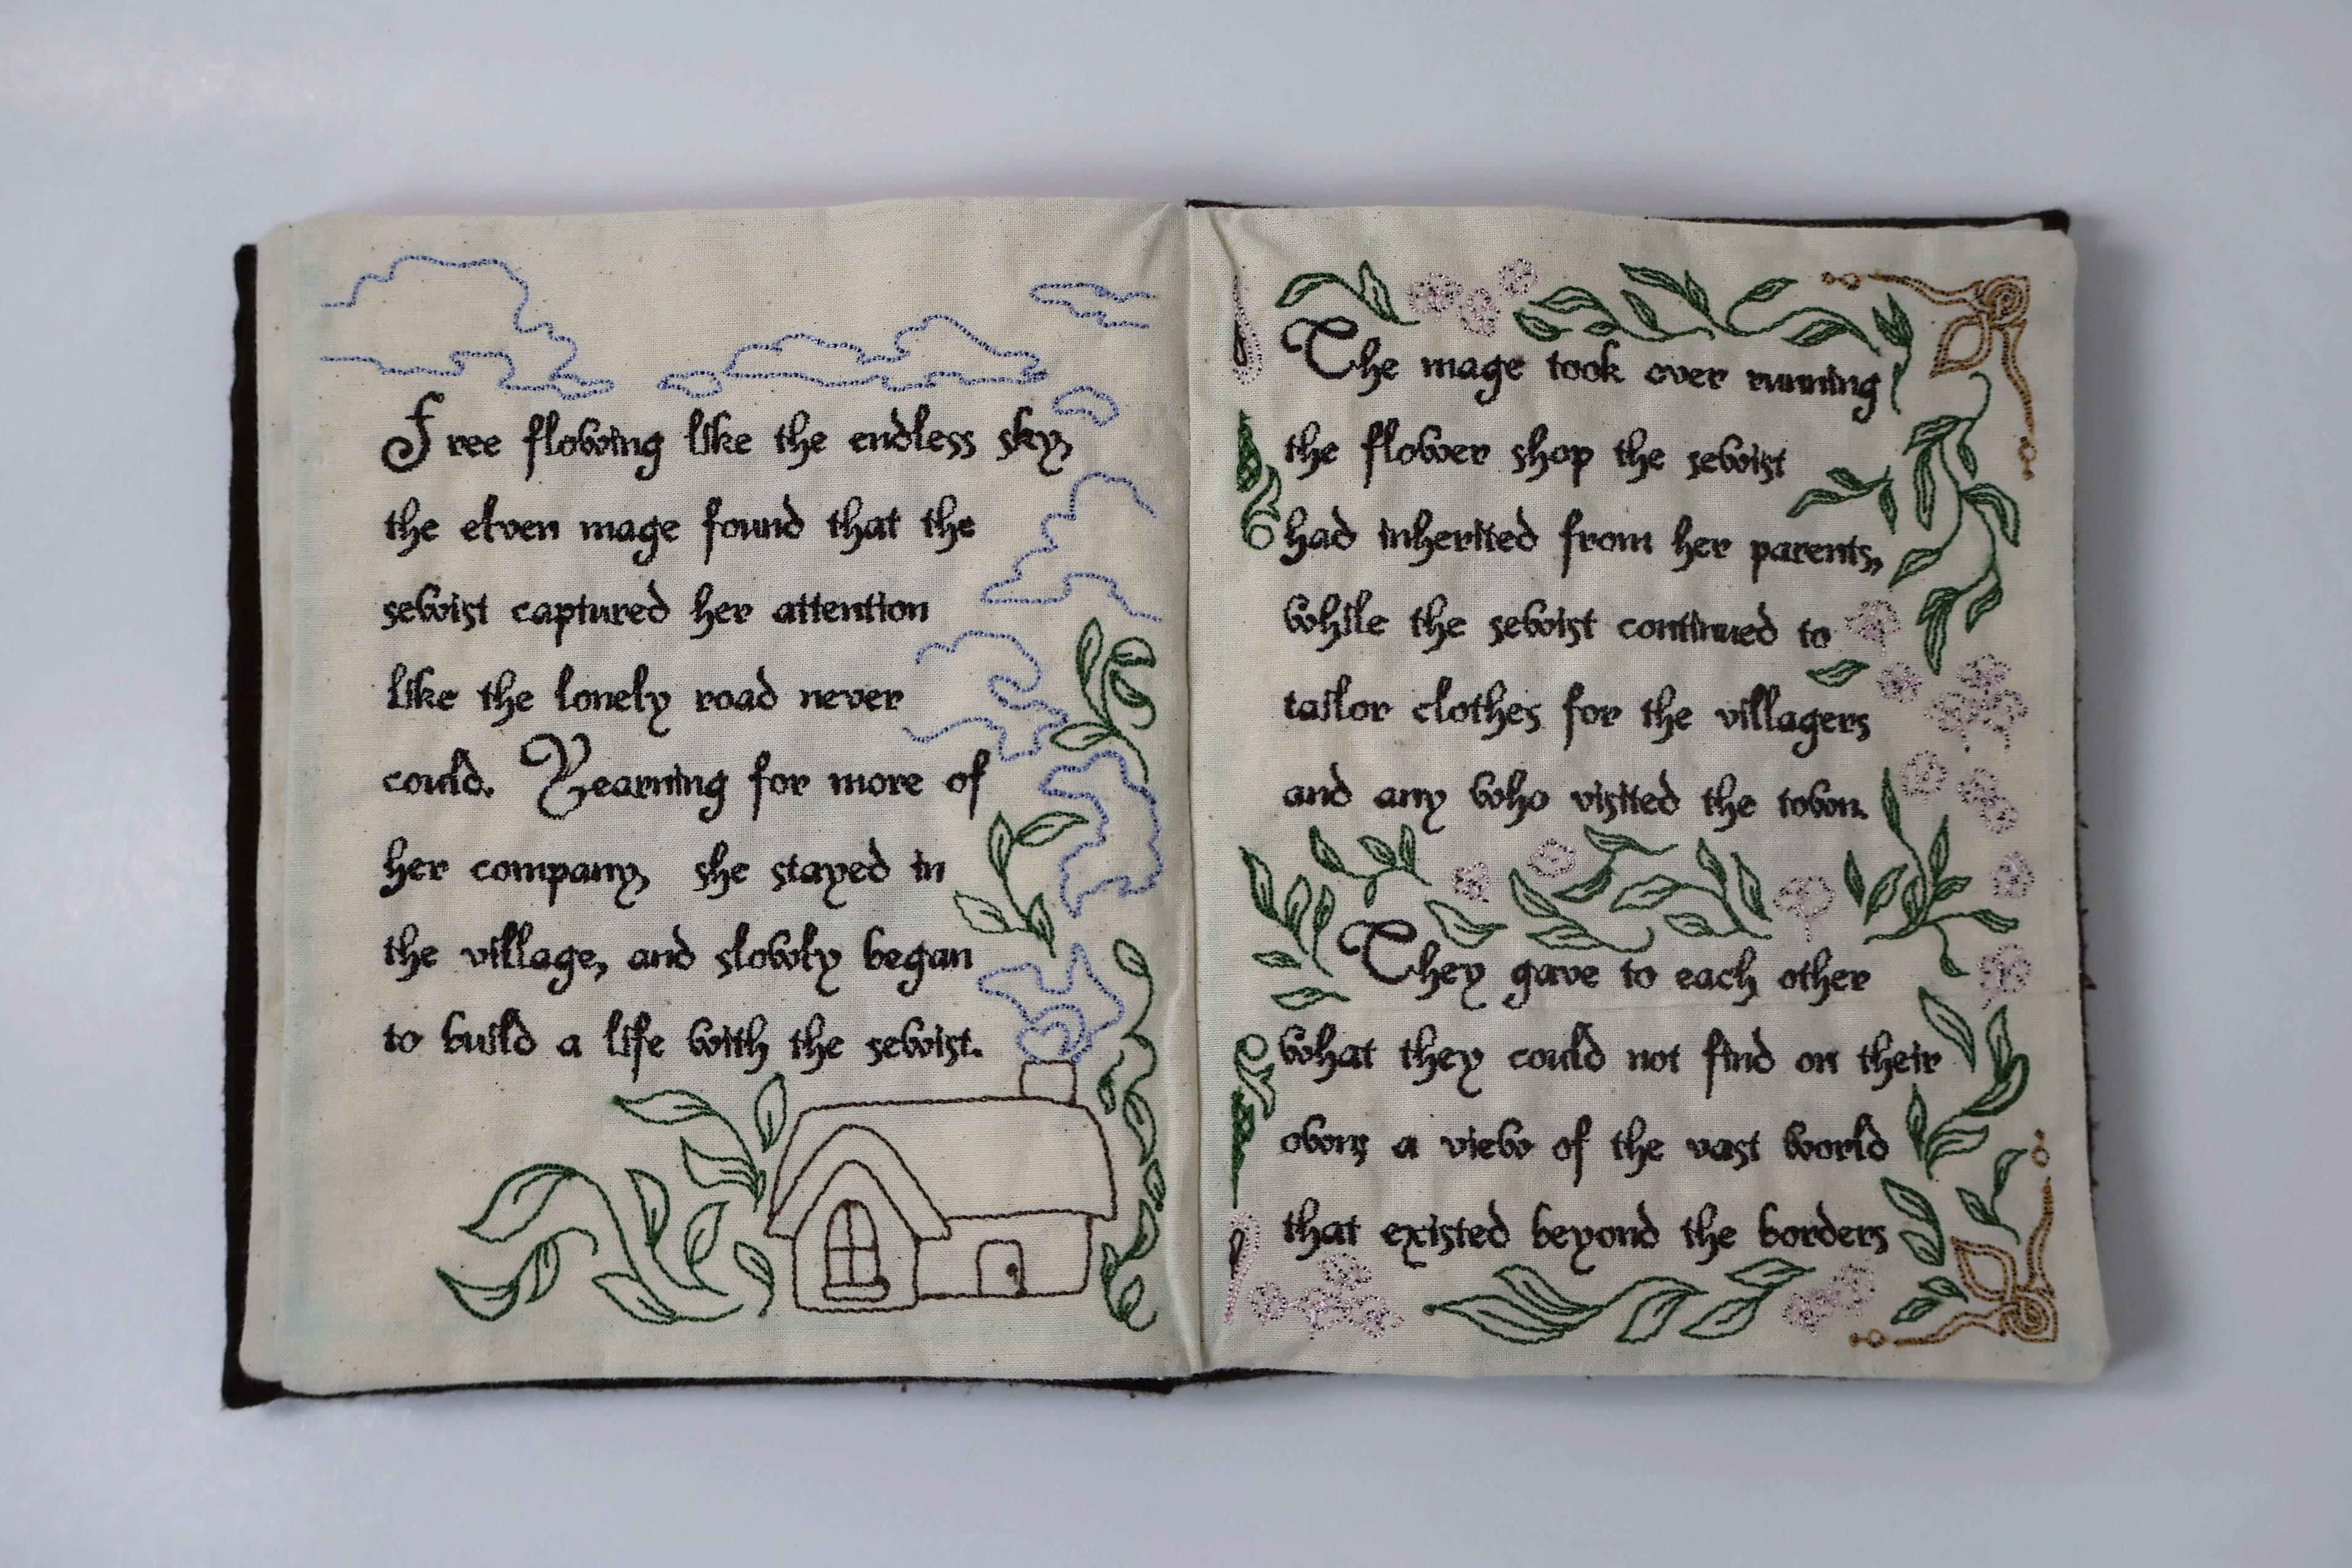 Free flowing like the endless sky,
the elven mage found that the
sewist captured her attention
like the lonely road never
could. Yearning for more of
her company, she stayed in
the village, and slowly began
to build a life with the sewist.
The mage took over running
the flower shop the sewist
had inherited from her parents,
while the sewist continued to
tailor clothes for the villagers
and any who visited the town.
They gave to each other
what they could not find on their
own; a view of the vast world
that existed beyond the borders